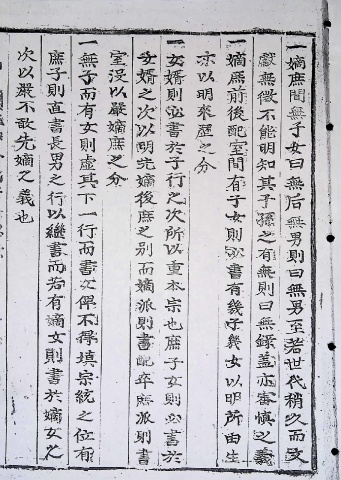 一嫡庶間無子女曰無后無男則曰無男至若世代稍久而文
獻無徵不能明知其子孫之有無則曰無錄盖亦審慎之義
一嫡庶前後配室間有子女則必書有幾子幾女以明所由生
亦以明來歷之分
一女婿則必書於子行之次所以重本宗也庶子女則必書於
女婿之次以明先嫡後庶之別而嫡派則書配卒庶派則書
室没以嚴嫡庶之分
一無子而有女則虛其下一行而書女俾不得填宗統之位有
庶子則直書長男之行以繼書而若有嫡女則書於嫡女之
次以嚴不敢先嫡之義也